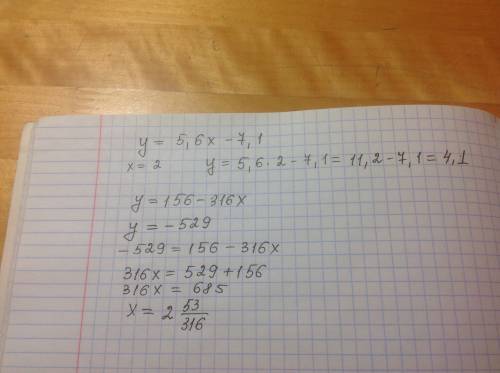 y = 5,6x - 7,1
x = 2 y = 5,6 · 2 - 7,1 = 11,2 - 7,1 = 4,1
y = 156 - 316x
y = -529
-529 = 156 - 316x
316x = 529 + 156
316x = 685
x = 2 53/316